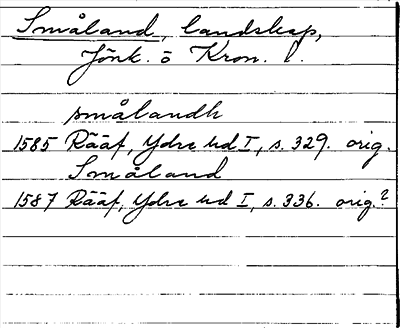 Småland, landskap,
Jönk. o Kron. l.
smålandh
1585 Rääf, Ydre hd I, s. 329. orig.
Småland
1587 Rääf, Ydre hd I, s. 336. orig.?